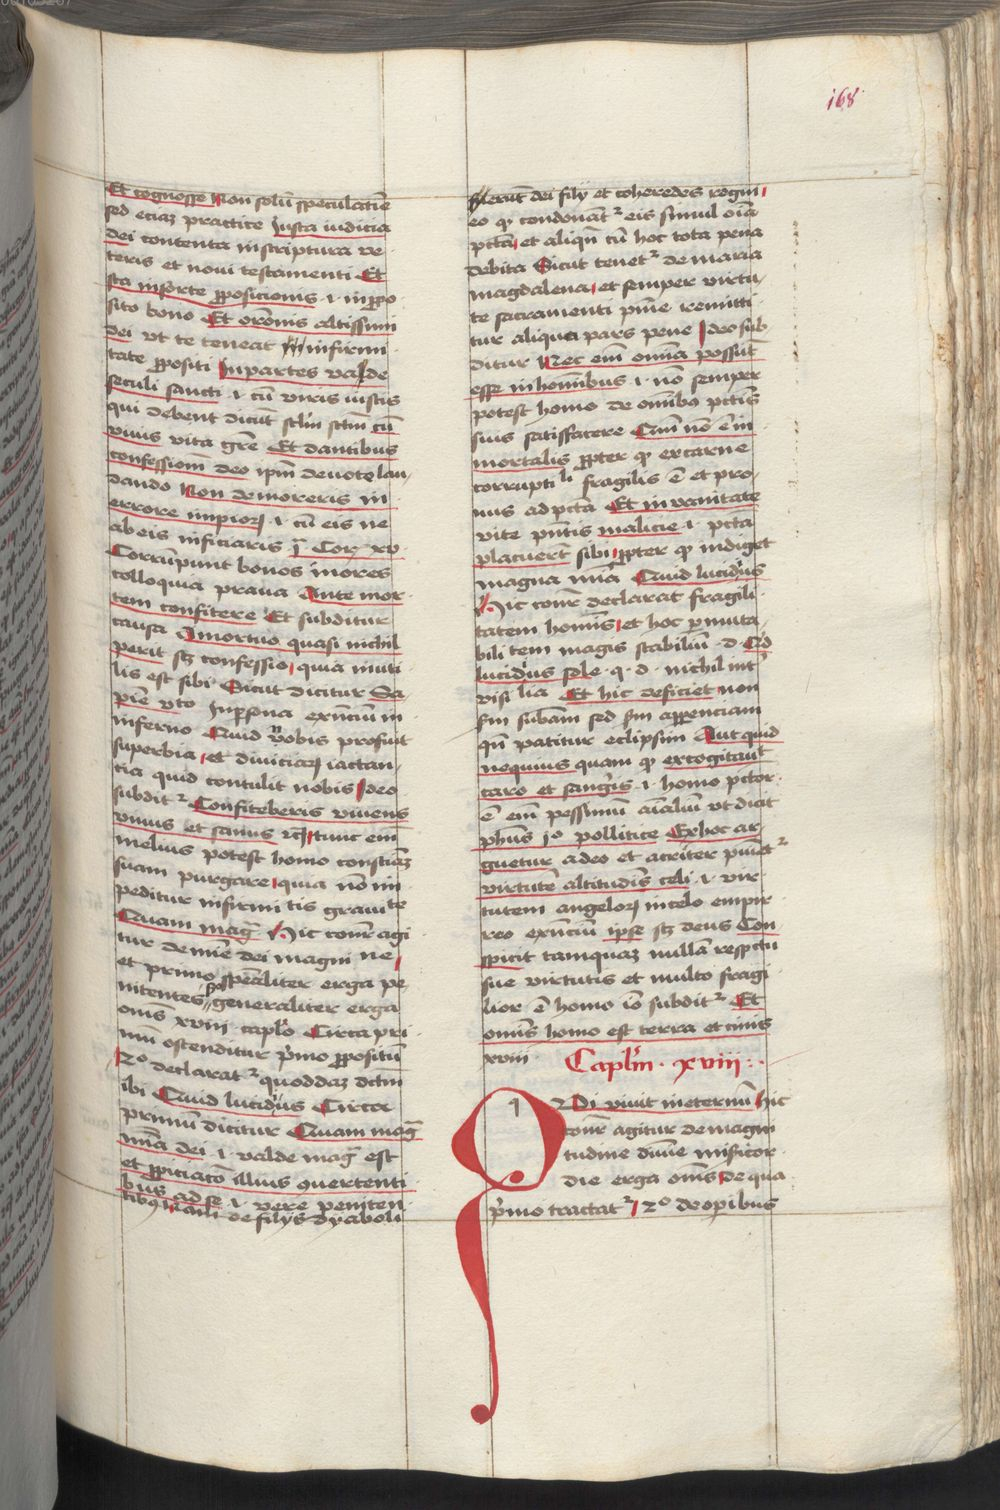 168
Et cognosse Non solū speculatiē
sed eciaz practice Justa iudicia
dei contenta in scriptura ve
teris et noui testamenti Et
sta in sorte ꝓposicionis .i. in ꝓpo
sito bono Et orōnis altissimi
dei vt te teneat in infirmi
tate ꝓpositi In partes vade
seculi sancti .i. cū viris iustis
qui debent dicūt sctīm sctīm cū
viuis vita grē Et dantibus
confessionm deo ipm̄ deuote lau
dando Non demoreris in
errore impioꝝ .i. cū eis ne
ab eis inficiaris j Cor xv
Corrumpunt bonos mores
colloquia praua Ante mor
tem confitere Et subditur
causa A mortuo quasi nichil
perit sꝫ confessio quia inuti
lis est sibi Sicut dicitur Sa
pien vto In persona exn̄cium in
inferno Quid nobis profuit
superbia et diuiciaꝝ iactan
cia quid contulit nobis Ideo
subditr Confiteberis viuens
viuus et sanus tunc em̄
melius potest homo consciāz
suam purgare quia nō im
peditur infirmitatis grauitate
Quam mag̅ Hic conr̄ agi
tur de mīe dei magni ne
et primo spēaliter erga pe
nitentes 2o generaliter erga
om̄s xviii capl̄o Circa pri
mū ostenditur p̄mo ꝓpositū
2o declaratr quoddaz dc̄m
ibi Quid lucidius Circa
primū dicitur Quam mag̅
mīa dei .i. valde mag̅ est
et ꝓpiciacō illius ꝯuertenti
bus ad se .i. vere peniten
tibꝰ nam de filijs dyaboli
fierūt dei filij et coheredes regni
eo qꝫ condonatr eis simul oīa
pctā et aliqn̄ cū hoc tota pena
debita Sicut tenetr de maria
magdalena et semper virtu
te sacramenti pnīe remitti
tur aliqua pars pene Ideo sub
ditur Nec em̄ omīa possūt
esse in homībus .i. nō semper
potest homo de omībꝰ pctīs
suis satisfacere Qm̄ nō ē im
mortalis ꝓpter qꝫ ex carne
corruptibili fragilis ē et pro
nus ad pctā Et in vanitate
vite pn̄tis malicie .i. pctā
placuerūt sibi ꝓpter qꝫ indiget
magna mīa Quid lucidius
Hic conr̄ declarat fragili
tatem hominis et hoc ꝑ muta
bilitem magis stabiliū .d. Qd
lucidius sole .q.d. nichil int̄
visibilia Et hic deficiet non
sm̄ subām sed sm̄ apparenciam
qn̄ patitur eclipsim Aut quid
nequius quam qꝫ excogitauit
caro et sangis .i. homo pctor
ē em̄ pessimū aīaliū vt dicit
phūs jo pollitice Ex hoc ar
guetur a deo et acriter punietr
virtutē altitudīs celi .i. vir
tutem angeloꝝ in celo empir
reo exn̄ciū ipse sꝫ deus Con
spicit tamquaz nullā respectu
sue virtutis et multo fragi
lior ē homo iō subditr Et
omīs homo est terra et cinis
xviii Caplm̄ . xviii :.
Qui viuit in eternū Hic
conr̄ agitur de magni
tudine diuīe misicor
die erga om̄s De qua
p̄mo tractatr 2o de operibus